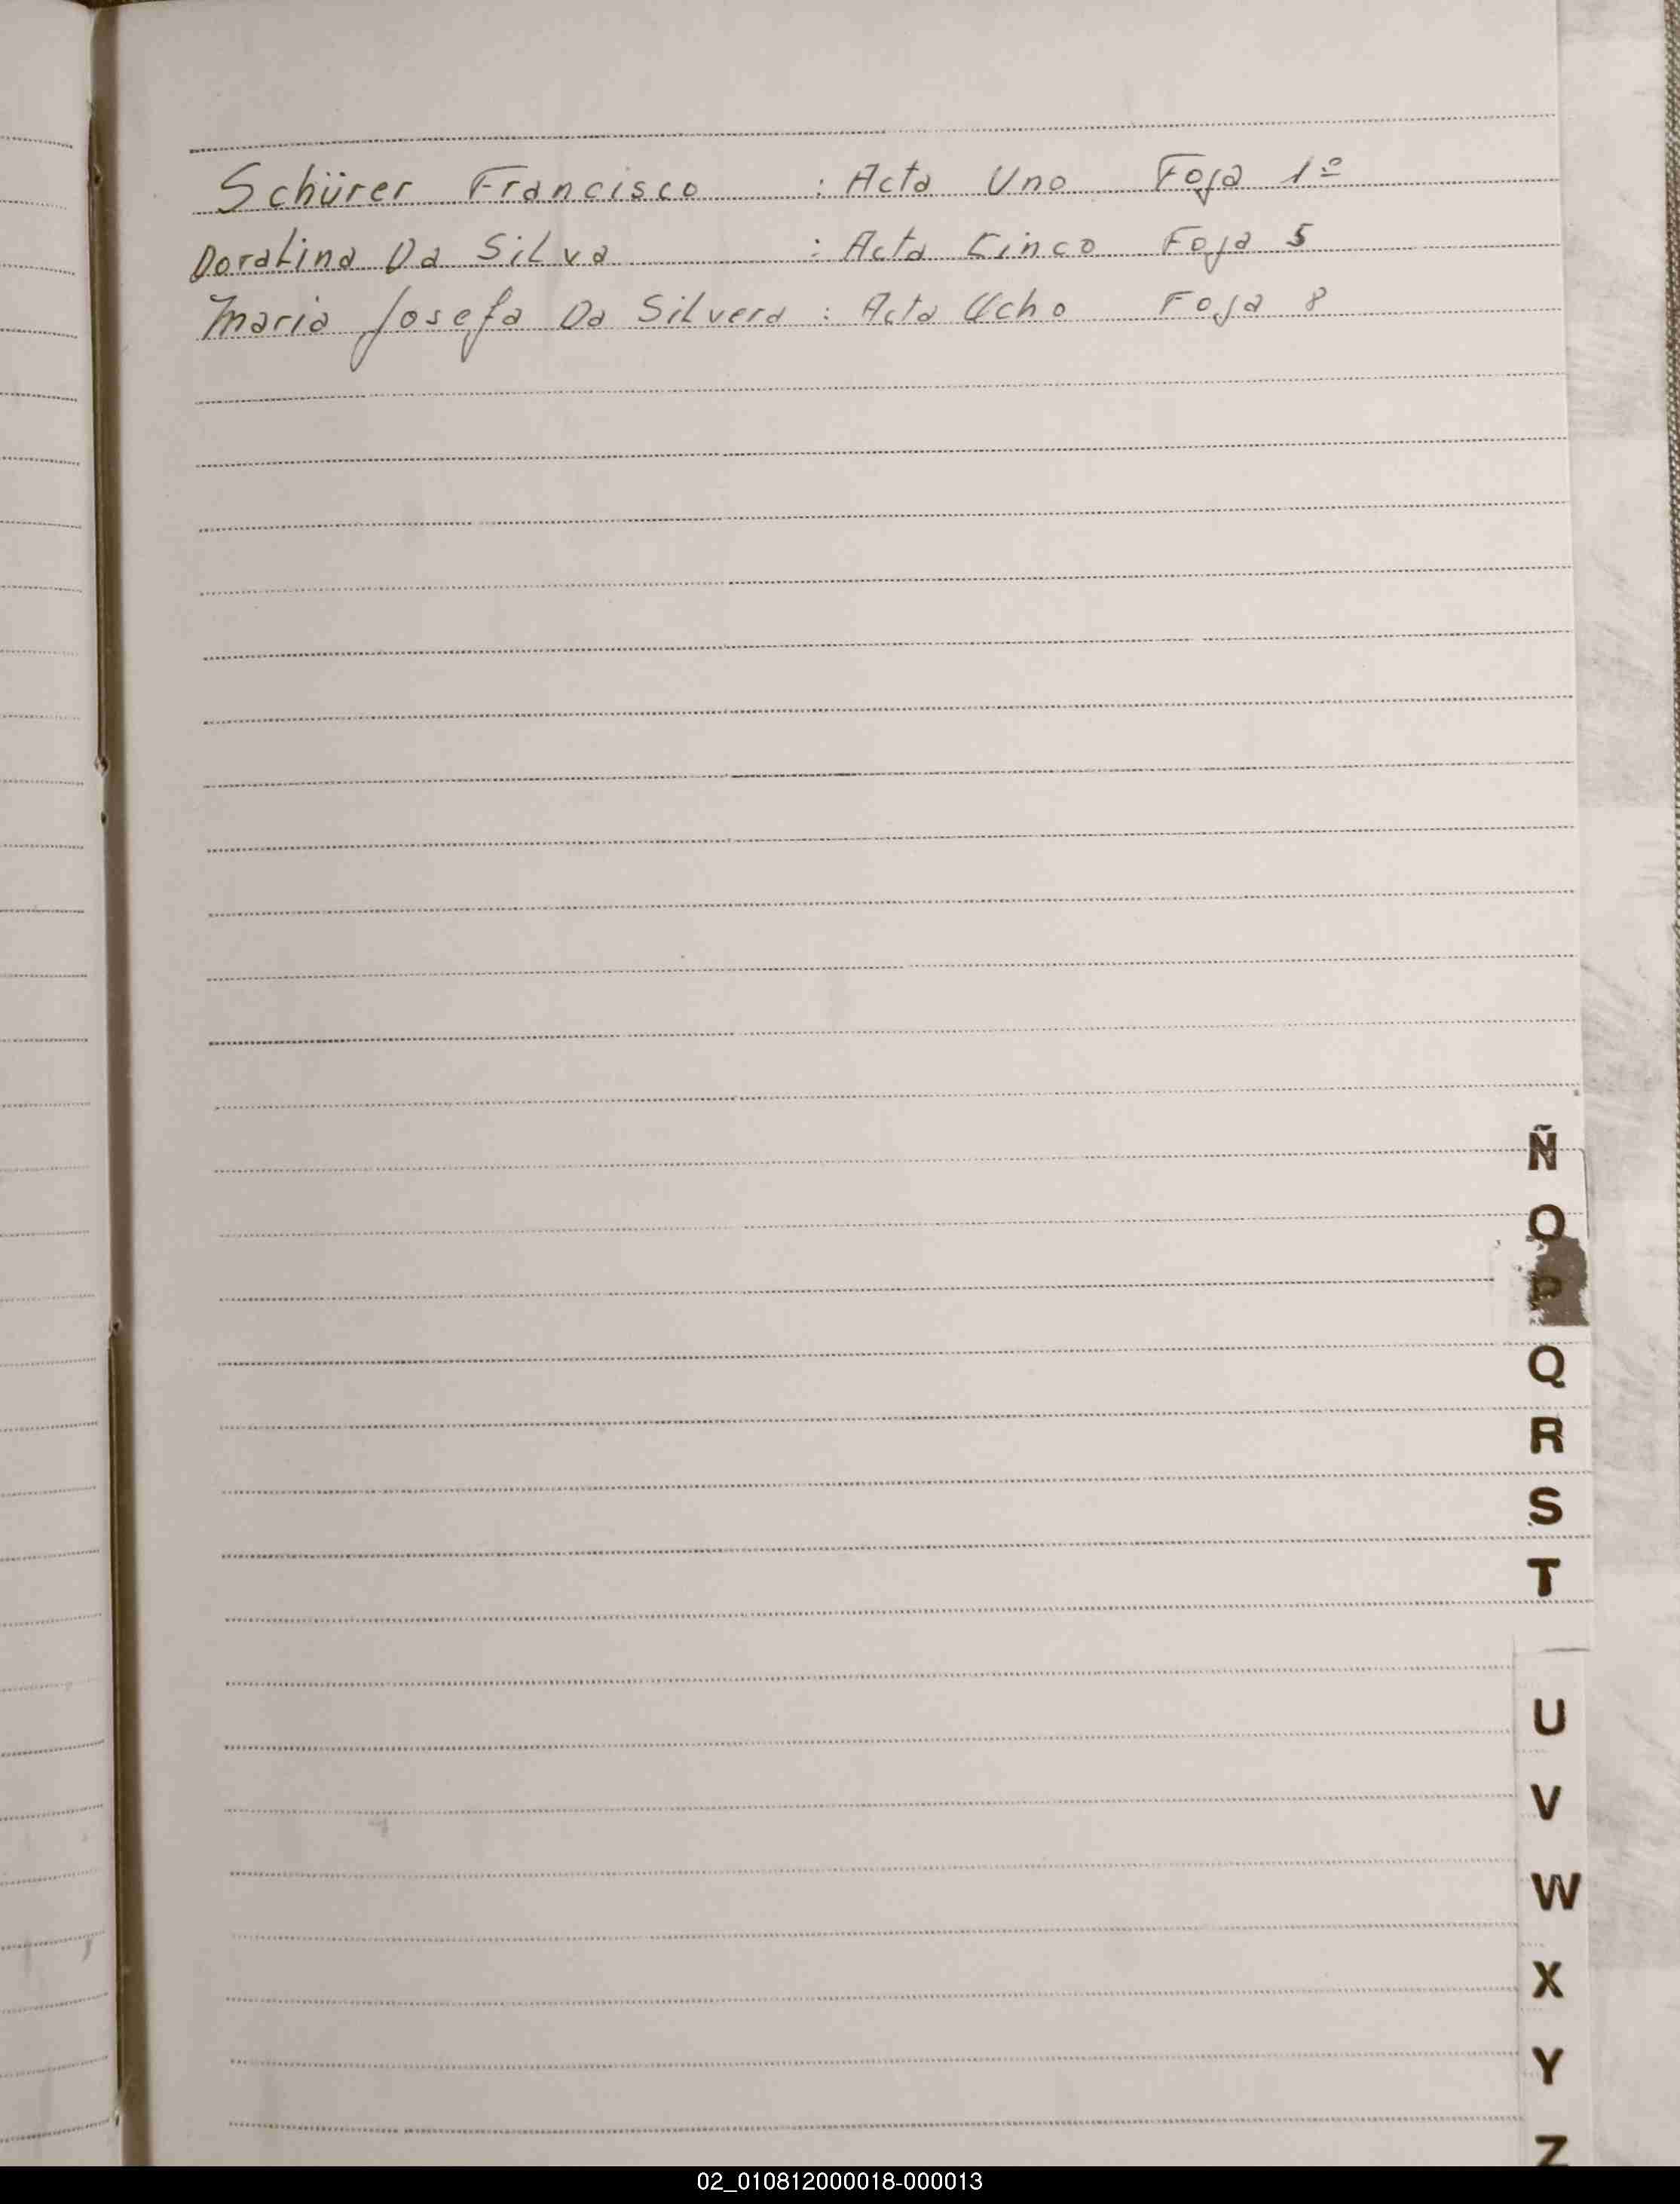 Schürer Francisco : Acta Uno Foja 1º
Doralina Da Silva : Acta Cinco Foja 5
Maria Josefa Da Silvera : Acta Ocho Foja 8
Ñ
O
P
Q
R
S
T
U
V
W
X
Y
Z
02_010812000018-000013